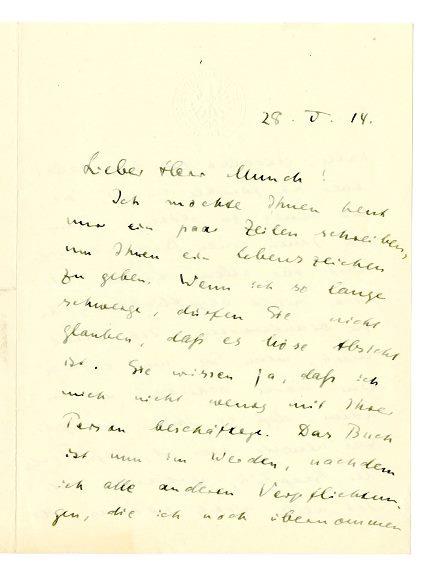 28. V. 14.
Lieber Herr Munch!
Ich möchte Ihnen heut
nur ein paar Zeilen schreiben,
um Ihnen ein Lebenszeichen
zu geben. Wenn ich so lange
schweige, dürfen Sie nicht
glauben, daß es böse Absicht
ist. Sie wissen ja, daß ich
mich nicht wenig mit Ihrer
Person beschäftige. Das Buch
ist nun im Werden, nachdem
ich alle anderen Verpflichtun-
gen, die ich noch übernommen